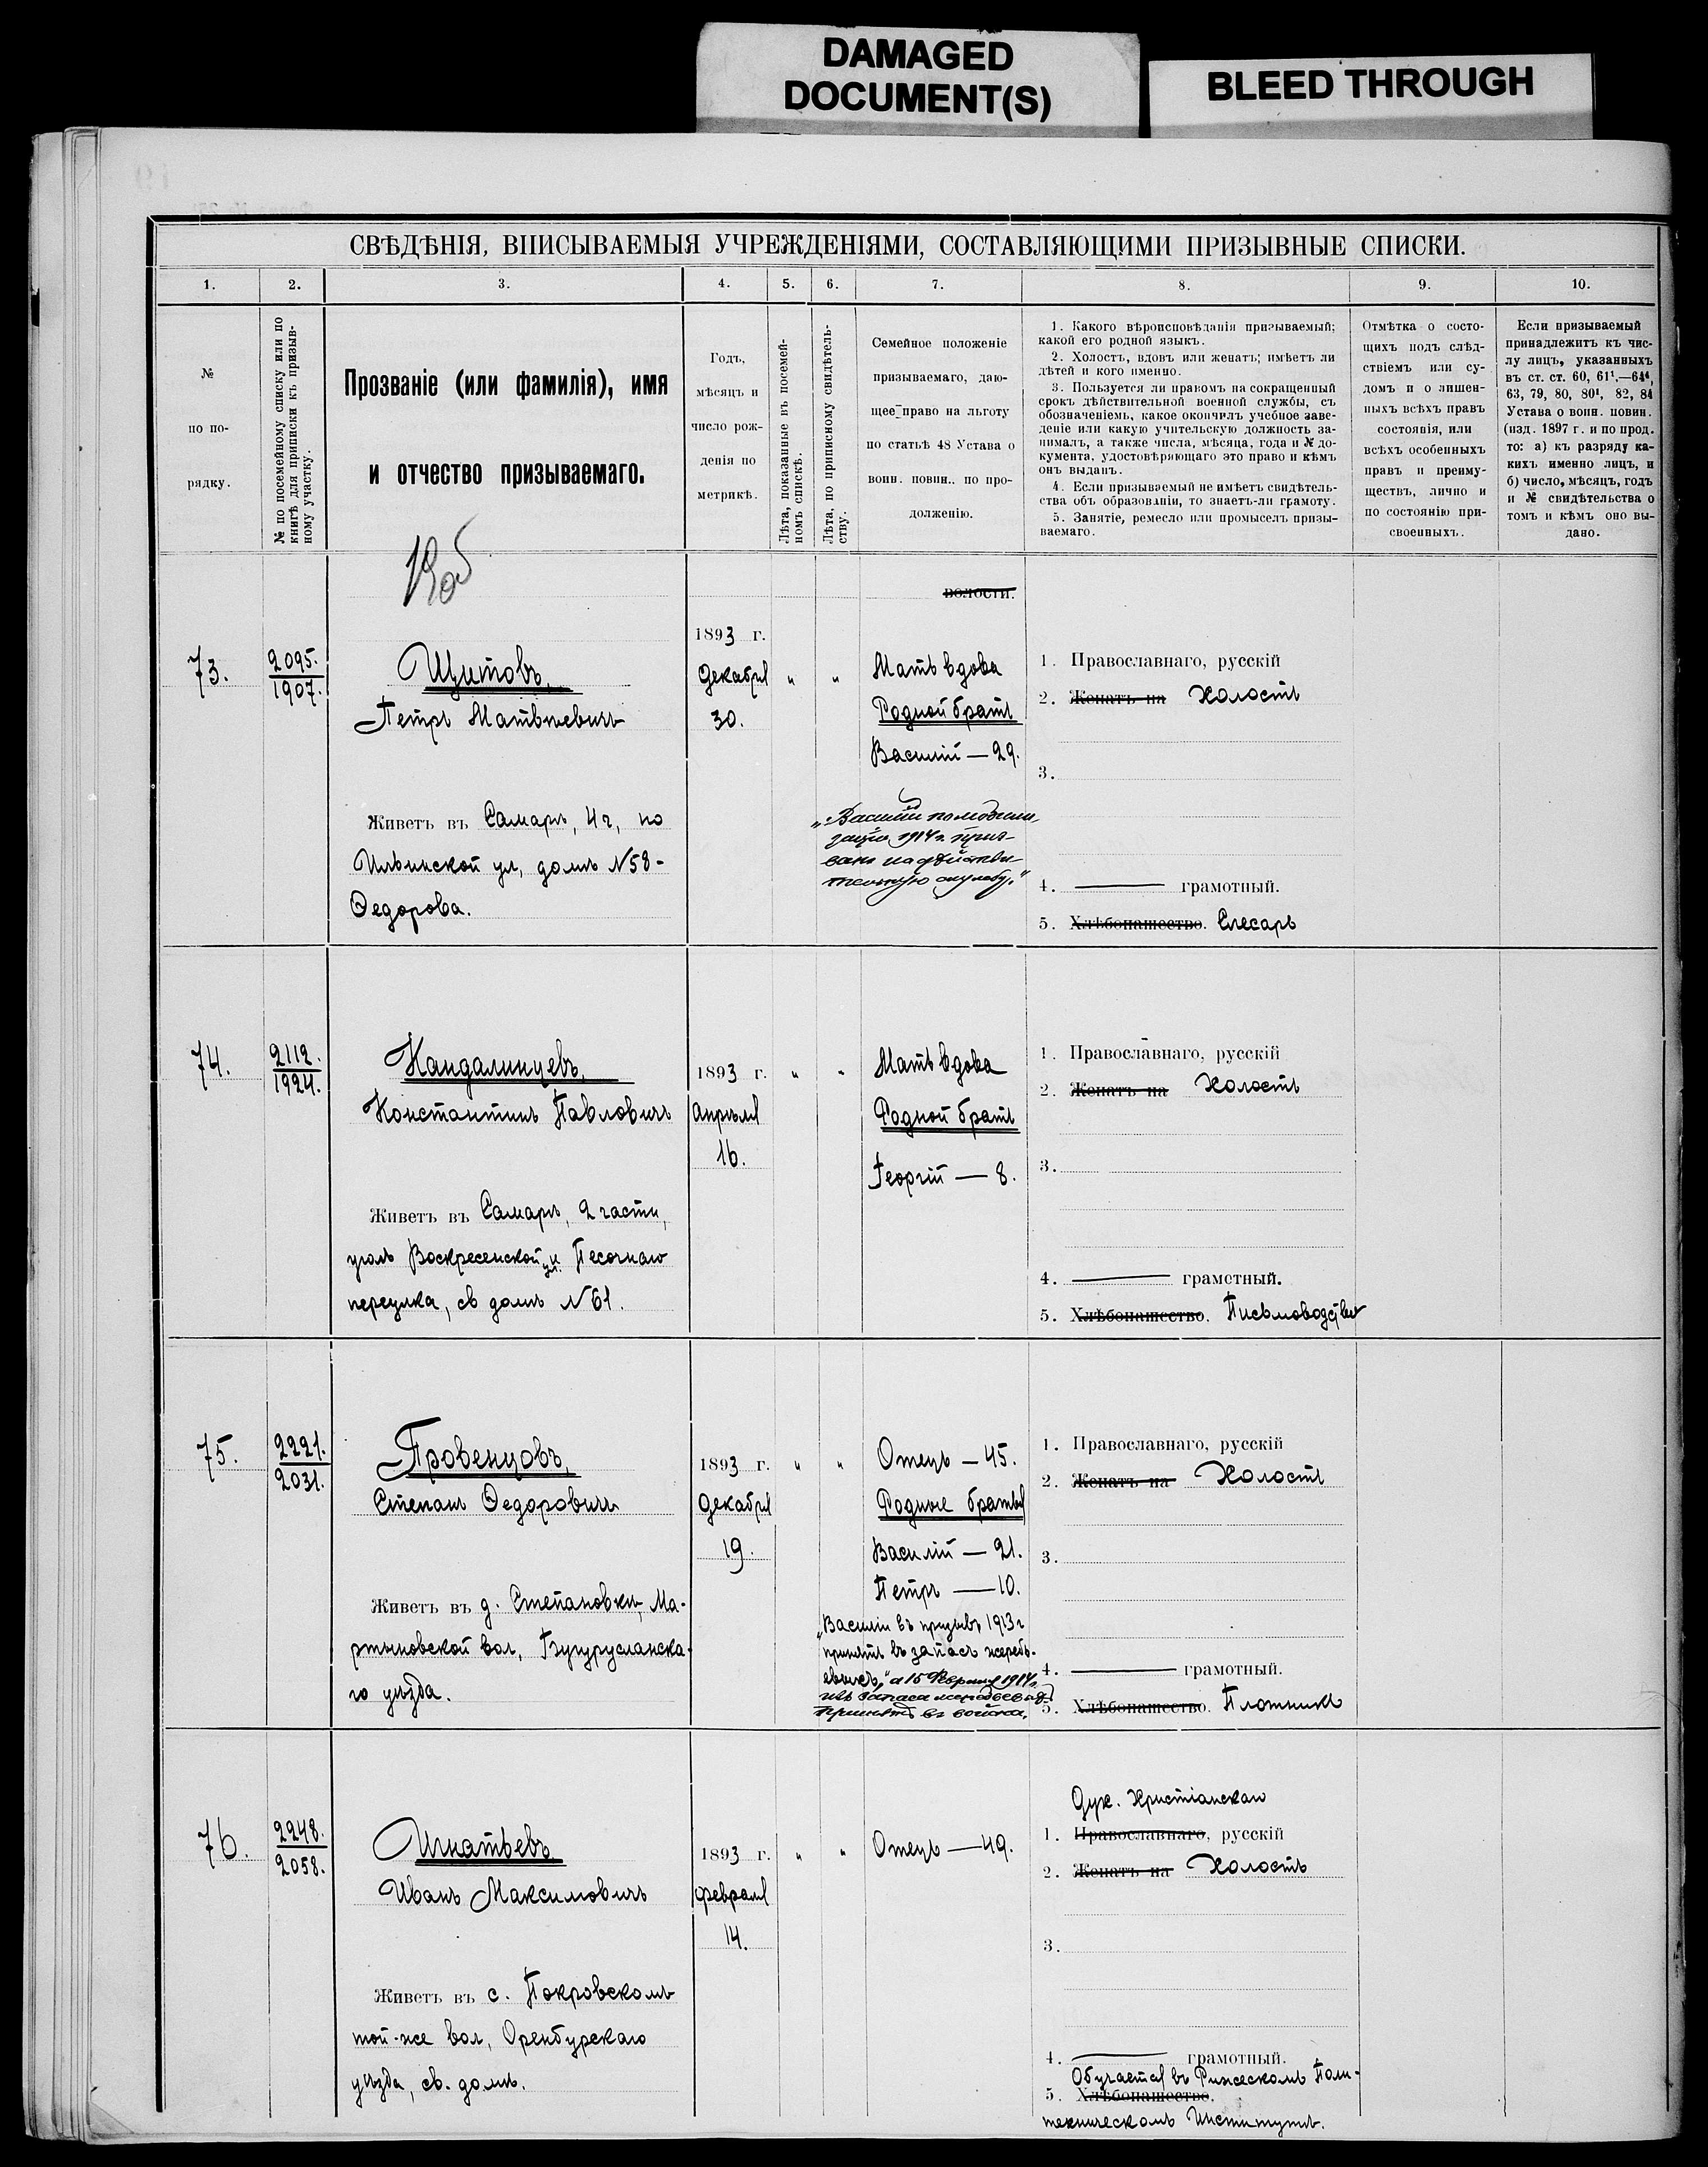 DAMAGED
DOCUMENT(S)
BLEED THROUGH
СВѢДѢНІЯ, ВПИСЫВАЕМЫЯ УЧРЕЖДЕНІЯМИ, СОСТАВЛЯЮЩИМИ ПРИЗЫВНЫЕ СПИСКИ.
1. 2. 3. 4. 5. 6. 7. 8. 9. 10.
№
по по-
рядку.
№ по посемейному списку или по
книгѣ для приписки къ призыв-
ному участку.
Прозваніе (или фамилія), имя
и отчество призываемаго.
Годъ,
мѣсяцъ и
число рож-
денія по
метрикѣ.
Лѣта, показанные въ посемей-
номъ спискѣ.
Лѣта, по приписному свидѣтель-
ству.
Семейное положеніе
призываемаго, даю-
щее право на льготу
по статьѣ 48 Устава о
воин. повин.. по про-
долженію.
1. Какого вѣроисповѣданія призываемый;
какой его родной языкъ.
2. Холостъ, вдовъ или женатъ; имѣетъ ли
дѣтей и кого именно.
3. Пользуется ли правомъ на сокращенный
срокъ дѣйствительной военной службы, съ
обозначеніемъ, какое окончилъ учебное заве-
деніе или какую учительскую должность за-
нималъ, а также числа, мѣсяца, года и № до-
кумента, удостовѣряющаго это право и кѣмъ
онъ выданъ.
4. Если призываемый не имѣетъ свидѣтель-
ства объ образованіи, то знаетъ-ли грамоту.
5. Занятіе, ремесло или промыселъ призы-
ваемаго.
Отмѣтка о состо-
щихъ подъ слѣд-
ствіемъ или су-
домъ и о лишен-
ныхъ всѣхъ правъ
состоянія, или
всѣхъ особенныхъ
правъ и преиму-
ществъ, лично и
по состоянію при-
своенныхъ.
Если призываемый
принадлежитъ къ чис-
лу лицъ, указанныхъ
въ ст. ст. 60, 61¹,—64⁴,
63, 79, 80, 80¹, 82, 84
Устава о воин. повин.
(изд. 1897 г. и по прод.
то: а) къ разряду ка-
кихъ именно лицъ, и
б) число, мѣсяцъ, годъ
и № свидѣтельства о
томъ и кѣмъ оно вы-
дано.
волости.
73.
2095.
1907.
Щитовъ,
Петръ Матвѣевичъ
Живетъ въ Самарѣ, 4 ч, по
Ильинской ул, домъ №58-
Ѳедорова.
1893 г.
Декабря
30.
" "
Мать вдова
Родной братъ
Василій — 29.
„Василій по мобили-
заціи 1914 г. приз-
ванъ на дѣйстви-
тельную службу."
1. Православнаго, русскій
2. Женатъ на Холостъ
3.
4. грамотный.
5. Хлѣбопашество. Слесарь
74.
2112.
1924.
Кандалинцевъ,
Константинъ Павловичъ
Живетъ въ Самарѣ, 2 части,
уголъ Воскресенской ул. и Песочнаго
переулка, св домъ №61.
1893 г.
Апрѣля
16.
" "
Мать вдова
Родной братъ
Георгій — 8.
1. Православнаго, русскій
2. Женатъ на Холостъ
3.
4. грамотный.
5. Хлѣбопашество. Письмоводство
75.
2221.
2031.
Провенцовъ,
Степанъ Ѳедоровичъ
Живетъ въ д. Степановкѣ, Ма-
ртыновской вол, Бугурусланска-
го уѣзда.
1893 г.
Декабря
19.
" "
Отецъ — 45.
Родные братья
Василій — 21.
Петръ — 10.
„Василій въ призывъ 1913 г
принятъ въ запасъ жеребь-
евыхъ," а 15 Февраля 1914 г.
изъ запаса жеребьевыхъ
принятъ въ войска.
1. Православнаго, русскій
2. Женатъ на Холостъ
3.
4. грамотный.
5. Хлѣбопашество. Плотникъ
76.
2248.
2058.
Игнатьевъ
Иванъ Максимовичъ
Живетъ въ с. Покровскомъ
той-же вол, Оренбурскаго
уѣзда, св. домъ.
1893 г.
Февраля
14.
" "
Отецъ — 49.
Дух. Христіанскаго
1. Православнаго, русскій
2. Женатъ на Холостъ
3.
4. грамотный.
Обучается въ Рижескомъ Поли-
5. Хлѣбопашество.
техническомъ Институтѣ.